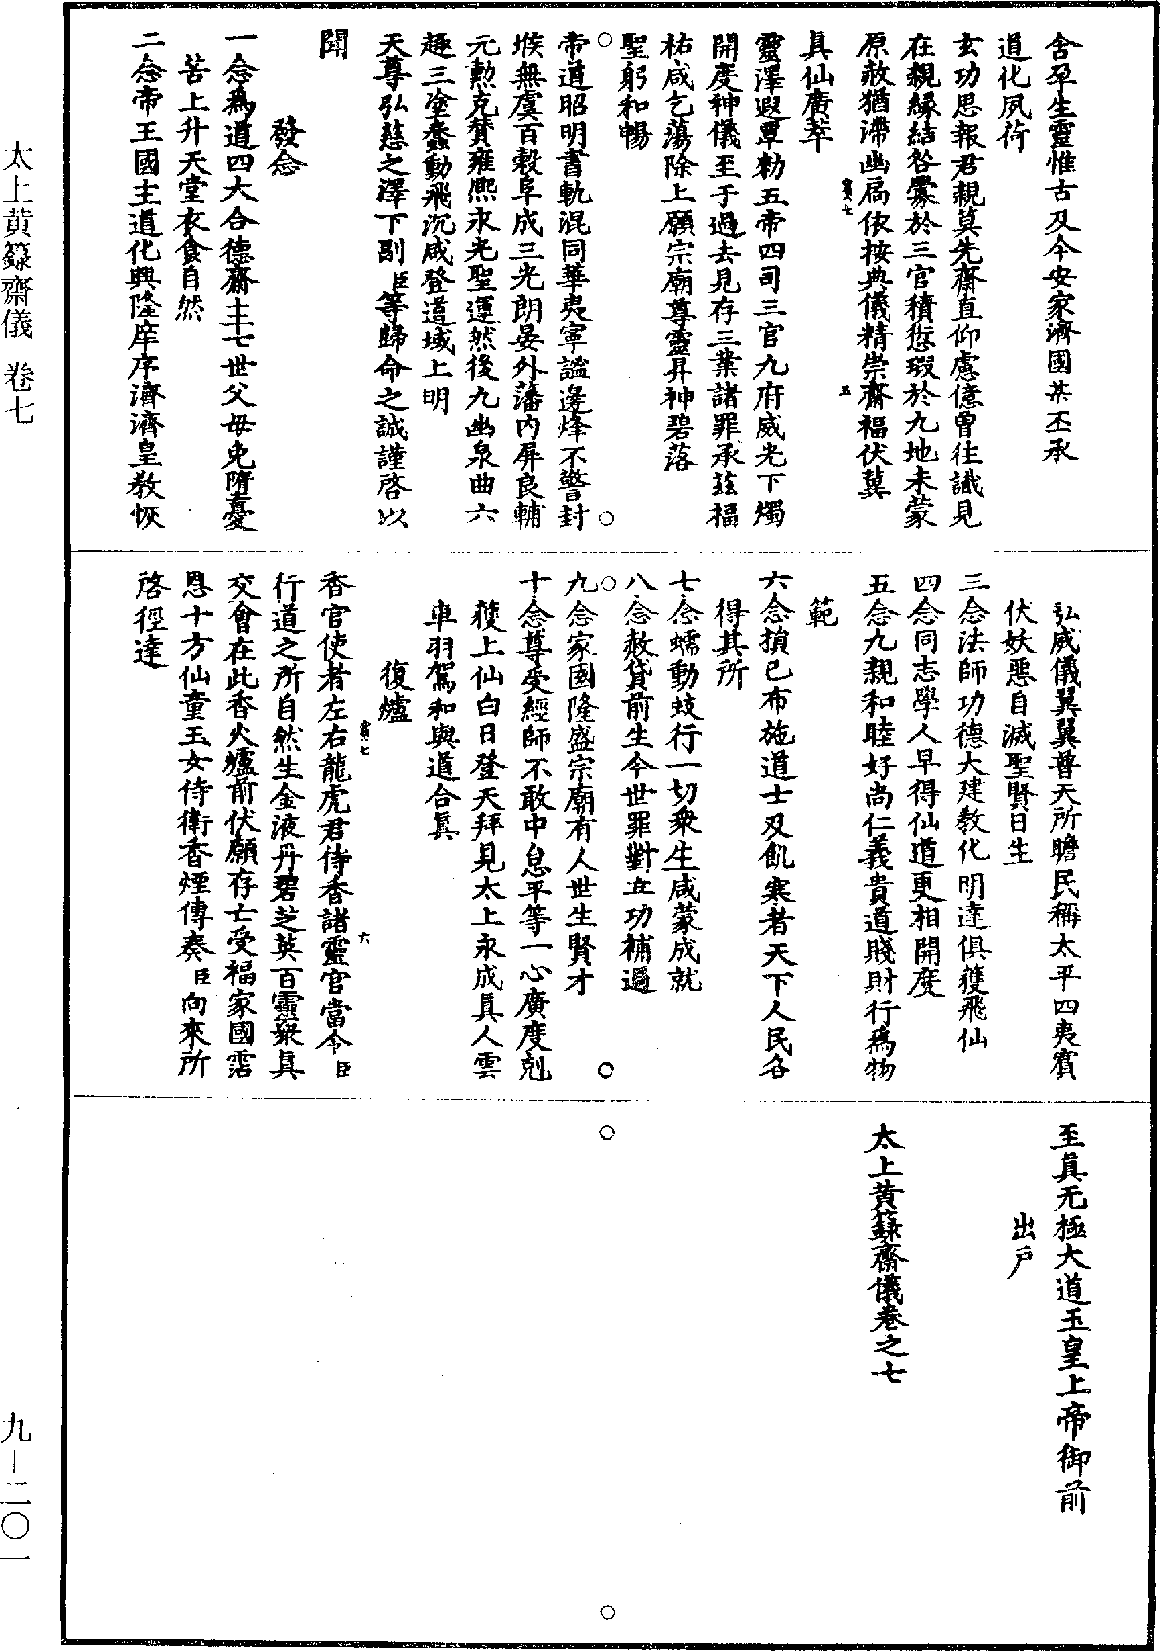 含孕生靈惟古及今安家濟國共丕承
道化夙荷
玄功思報君親莫先齋直仰慮億曾往識見
在親緣結咎釁於三官積愆瑕於九地未蒙
原赦猶滯幽扃依按典儀精崇齋福伏冀
真仙廣萃
靈澤遐覃勑五帝四司三官九府威光下燭
開度神儀至于過去見存三業諸罪承茲福
祐咸乞蕩除上願宗廟尊靈昇神碧落
聖躬和暢
帝道昭明書軌混同華夷寧謐邊烽不警封
堠無虞百穀阜成三光朗晏外藩內屏良輔
元勳克贊雍熙永光聖運然後九幽泉曲六
趣三塗蠢動飛沉咸登道域上明
天尊弘慈之澤下副臣等歸命之誠謹啓以
聞
發念
一念為道四大合德齋主七世父母免墮憂
苦上升天堂衣食自然
二念帝王國主道化興隆庠序濟濟皇教恢
弘威儀翼翼普天所瞻民稱太平四夷賓
伏妖惡自滅聖賢日生
三念法師功德大建教化明達俱獲飛仙
四念同志學人早得仙道更相開度
五念九親和睦好尚仁義貴道賤財行為物
範
六念損己布施道士及飢寒者天下人民各
得其所
七念蠕動蚑行一切衆生咸蒙成就
八念赦貸前生今世罪對立功補過
九念家國隆盛宗廟有人世生賢才
十念尊受經師不敢中怠平等一心廣度剋
獲上仙白日登天拜見太上永成真人雲
車羽駕和與道合真
復爐
香官使者左右龍虎君侍香諸靈官當令臣
行道之所自然生金液丹碧芝英百靈衆真
交會在此香火爐前伏願存亡受福家國霑
恩十方仙童玉女侍衛香煙傳奏臣向來所
啓徑達
至真无極大道玉皇上帝御前
出戶
太上黃籙齋儀卷之七
太上黃籙齋儀 卷七
九—二〇一